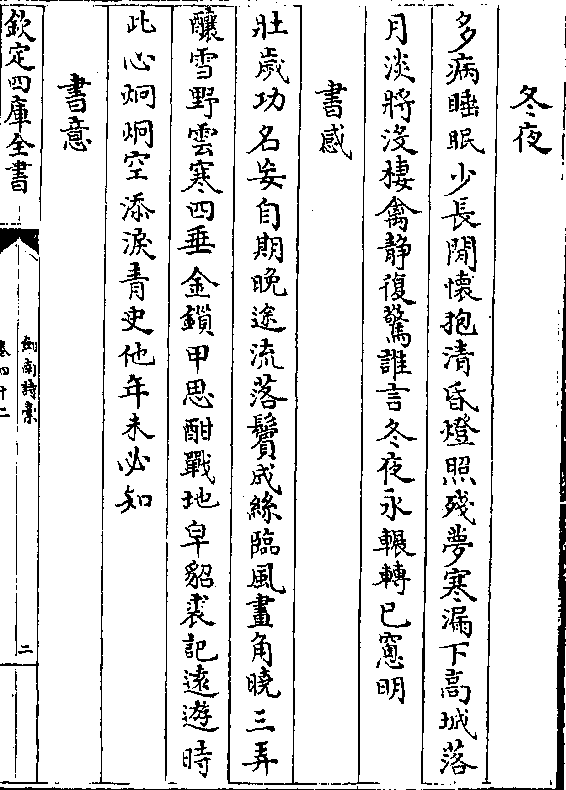 冬夜
多病睡眠少長閒懷抱清昏燈照殘夢寒漏下高城落
月淡將沒棲禽静復驚誰言冬夜永輾轉已窻明
書感
壯歲功名妄自期晚途流落鬢成絲臨風畫角曉三弄
釀雪野雲寒四垂金鎖甲思酣戰地皁貂裘記遠遊時
此心炯炯空添淚青史他年未必知
書意
欽定四庫全書
劍南詩稾
卷四十二
二